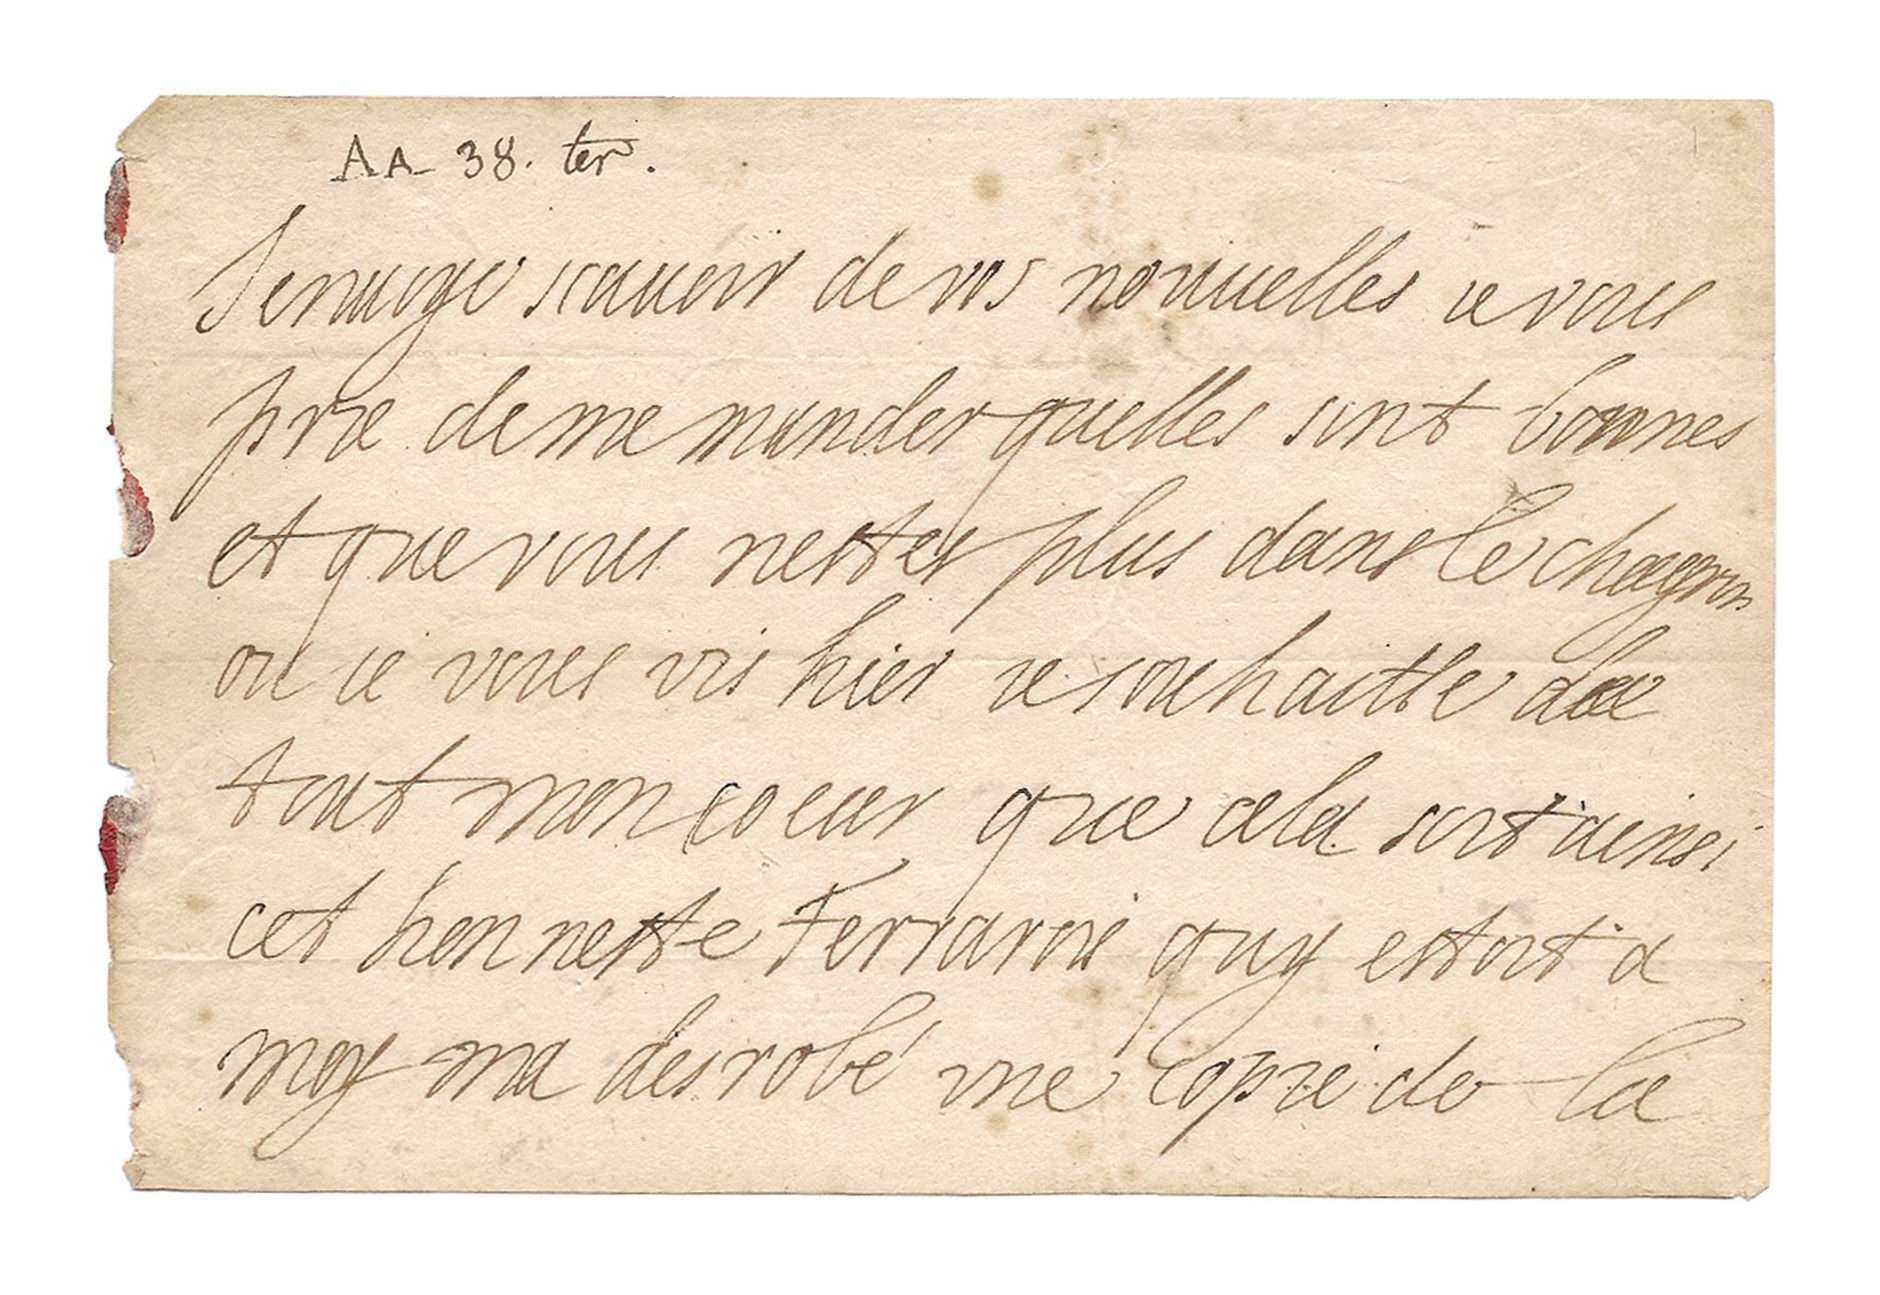 Aa 38. ter.
Jenuoye scauoir de vos nouuelles ie vous
prie de me mander quelles sont bonnes
et que vous nestes plus dans le chagrin
ou ie vous vis hier ie souhaitte de
tout mon coeur que cela soit ainsi
cet honneste Ferrarois quy estoit a
moy ma desrobé vne copie de la